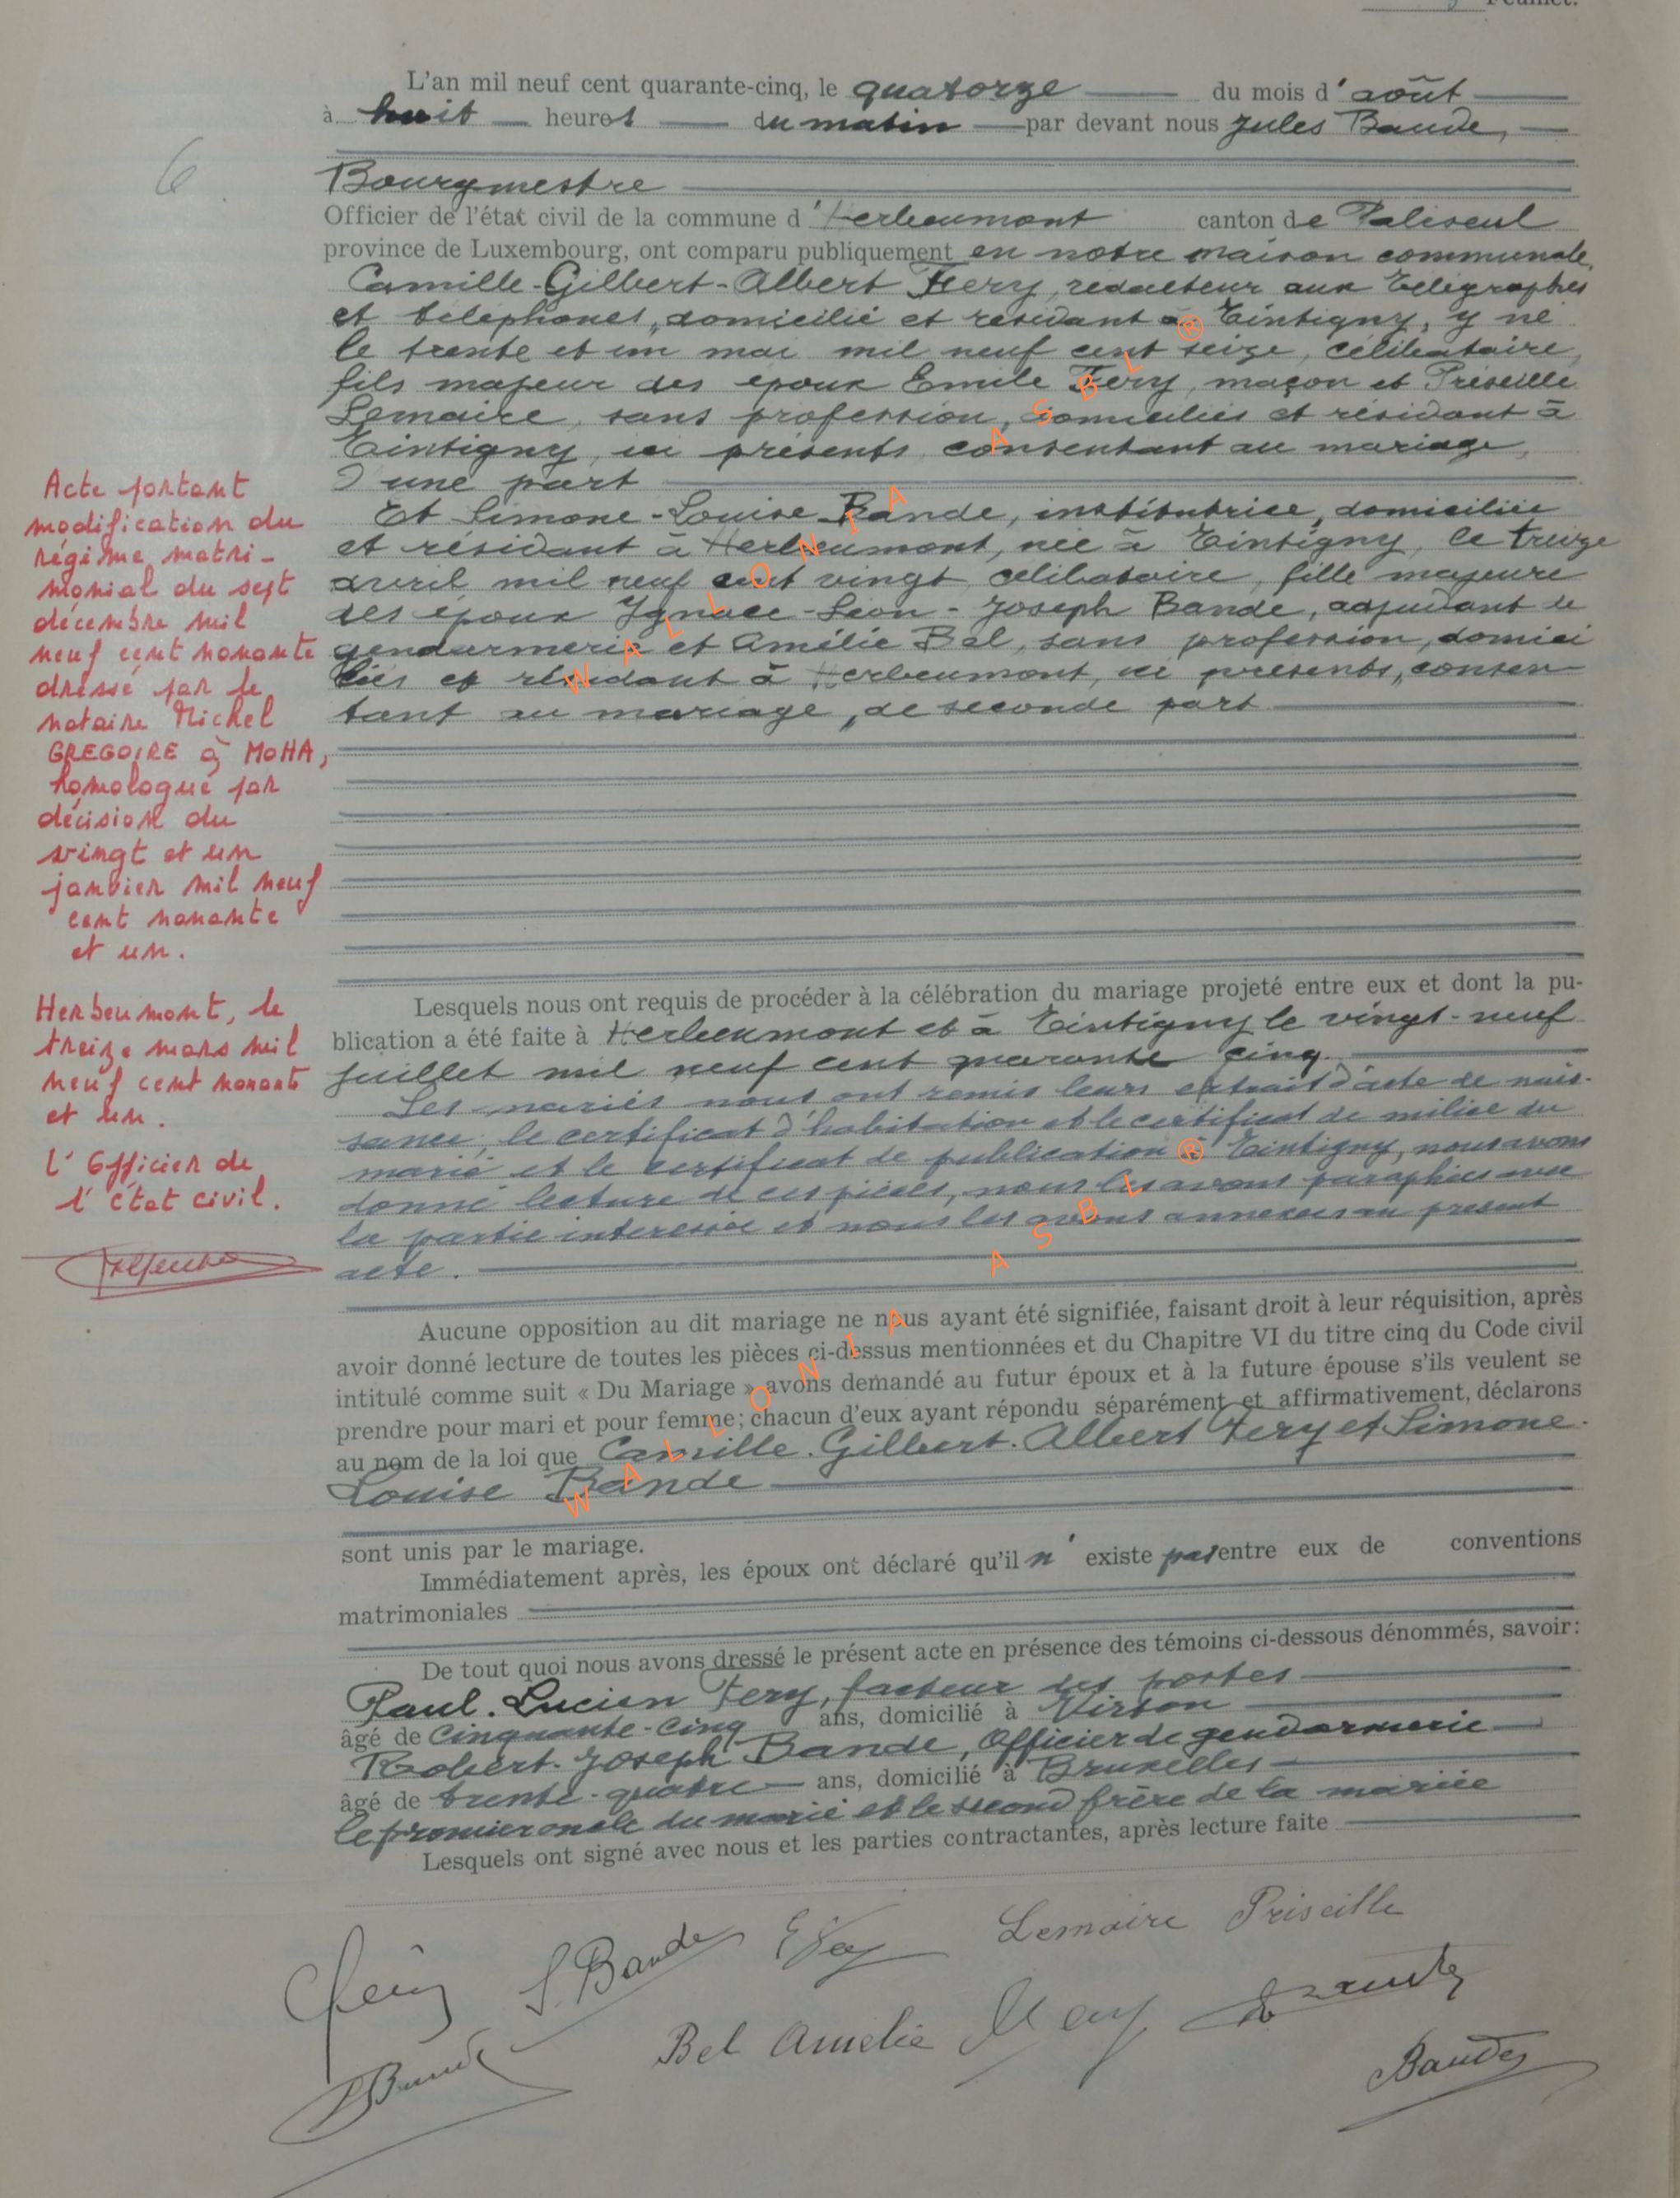 Feuillet.
L'an mil neuf cent quarante-cinq, le quatorze du mois d'août
à huit heures du matin par devant nous Jules Bande,
6
Bourgmestre
Officier de l'état civil de la commune d'Herbeumont canton de Paliseul
province de Luxembourg, ont comparu publiquement en notre maison communale,
Camille-Gilbert-Albert Fery, rédacteur aux Télégraphes
et téléphones, domicilié et résidant à Tintigny, y né
le trente et un mai mil neuf cent seize, célibataire,
fils majeur des époux Emile Fery, maçon et Priscille
Lemaire, sans profession, domiciliés et résidant à
Tintigny, ici présents consentant au mariage,
d'une part
Et Simone-Louise Bande, institutrice, domiciliée
et résidant à Herbeumont, née à Tintigny, le treize
avril mil neuf cent vingt, célibataire, fille majeure
des époux Ignace-Léon-Joseph Bande, adjudant de
gendarmerie et Amélie Bel, sans profession, domici
liés et résidant à Herbeumont, ici présents, consen
tant au mariage, de seconde part
Acte portant
modification du
régime matri-
monial du sept
décembre mil
neuf cent nonante
dressé par le
notaire Michel
GREGOIRE à MOHA,
homologué par
décision du
vingt et un
janvier mil neuf
cent nonante
et un.
Herbeumont, le
treize mars mil
neuf cent nonante
et un.
L'Officier de
l'état civil.
Lesquels nous ont requis de procéder à la célébration du mariage projeté entre eux et dont la pu-
blication a été faite à Herbeumont et à Tintigny le vingt-neuf
juillet mil neuf cent quarante cinq.
Les mariés nous ont remis leurs extrait d'acte de nais-
sance, le certificat d'habitation et le certificat de milice du
marié et le certificat de publication à Tintigny, nous avons
donné lecture de ces pièces, nous les avons paraphées avec
la partie intéressée et nous les avons annexées au présent
acte.
Aucune opposition au dit mariage ne nous ayant été signifiée, faisant droit à leur réquisition, après
avoir donné lecture de toutes les pièces ci-dessus mentionnées et du Chapitre VI du titre cinq du Code civil
intitulé comme suit « Du Mariage » avons demandé au futur époux et à la future épouse s'ils veulent se
prendre pour mari et pour femme; chacun d'eux ayant répondu séparément et affirmativement, déclarons
au nom de la loi que Camille. Gilbert. Albert Fery et Simone.
Louise Bande
sont unis par le mariage.
Immédiatement après, les époux ont déclaré qu'il n'existe pas entre eux de conventions
matrimoniales
De tout quoi nous avons dressé le présent acte en présence des témoins ci-dessous dénommés, savoir:
Paul. Lucien Fery, facteur des postes
âgé de cinquante-cinq ans, domicilié à Virton
Robert. Joseph Bande, Officier de gendarmerie
âgé de trente-quatre ans, domicilié à Bruxelles
le premier oncle du marié et le second frère de la mariée
Lesquels ont signé avec nous et les parties contractantes, après lecture faite
S. Bande Lemaire Priscille
Bande Bel Amélie Bande
WALLONIA ASBL ®
WALLONIA ASBL ®